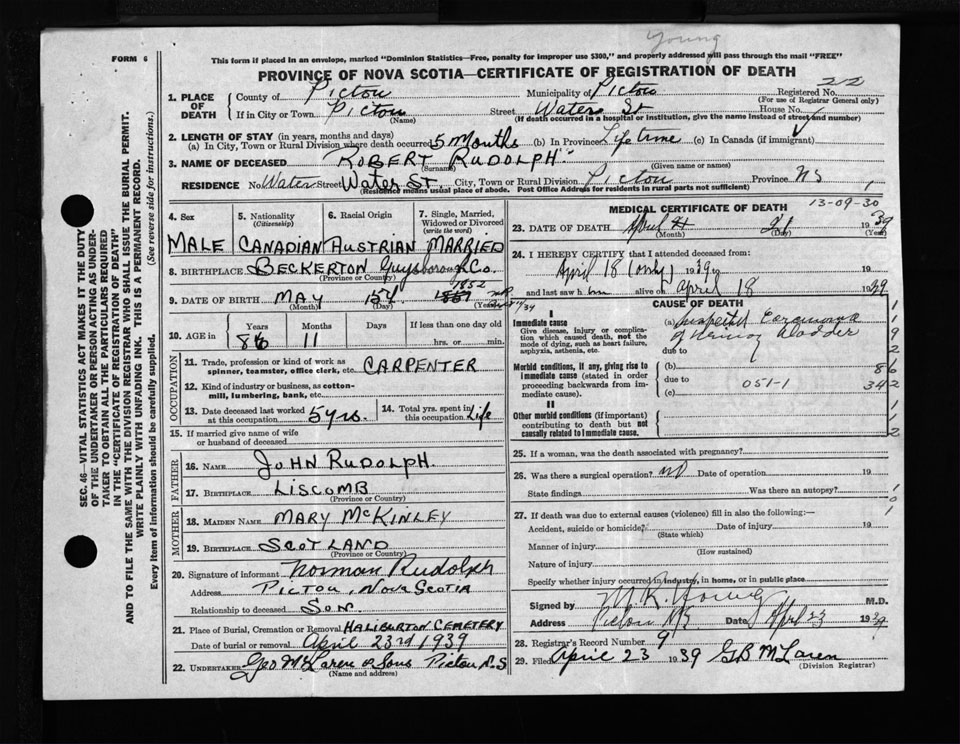 Young
FORM 6
This form if placed in an envelope, marked "Dominion Statistics—Free, penalty for improper use $300," and properly addressed will pass through the mail "FREE"
PROVINCE OF NOVA SCOTIA—CERTIFICATE OF REGISTRATION OF DEATH
1. PLACE OF DEATH
County of Pictou Municipality of Pictou Registered No. 22
(For use of Registrar General only)
If in City or Town Pictou Street Water St House No.
(Name) (If death occurred in a hospital or institution, give the name instead of street and number)
2. LENGTH OF STAY (in years, months and days)
(a) In City, Town or Rural Division where death occurred 5 Months (b) In Province Life time (c) In Canada (if immigrant)
3. NAME OF DECEASED ROBERT RUDOLPH
(Surname) (Given name or names)
RESIDENCE No. Water Street Water St City, Town or Rural Division Pictou Province NS 1
(Residence means usual place of abode. Post Office Address for residents in rural parts not sufficient)
4. Sex 5. Nationality (Citizenship) 6. Racial Origin 7. Single, Married, Widowed or Divorced (write the word)
MALE CANADIAN AUSTRIAN MARRIED
8. BIRTHPLACE BECKERTON Guysborough Co.
(Province or Country)
1852
9. DATE OF BIRTH MAY 15th
(Month) (Day) (Year)
10. AGE in Years Months Days If less than one day old
86 11 hrs. or min.
OCCUPATION
11. Trade, profession or kind of work as spinner, teamster, office clerk, etc. CARPENTER
12. Kind of industry or business, as cotton-mill, lumbering, bank, etc.
13. Date deceased last worked at this occupation 5 yrs. 14. Total yrs. spent in this occupation Life
15. If married give name of wife or husband of deceased
FATHER
16. NAME JOHN RUDOLPH
17. BIRTHPLACE LISCOMB
(Province or Country)
MOTHER
18. MAIDEN NAME MARY McKINLEY
19. BIRTHPLACE SCOTLAND
(Province or Country)
20. Signature of informant Norman Rudolph
Address PICTOU, NOVA SCOTIA
Relationship to deceased SON
21. Place of Burial, Cremation or Removal HALIBURTON CEMETERY
Date of burial or removal April 23rd 1939
22. UNDERTAKER Geo McLaren & Sons Pictou N.S
(Name and address)
MEDICAL CERTIFICATE OF DEATH 13-09-30
23. DATE OF DEATH April 21 1939
(Month) (Day) (Year)
24. I HEREBY CERTIFY that I attended deceased from:
April 18 (only) 1939 19
and last saw him alive on April 18 1939
CAUSE OF DEATH
I
Immediate cause
Give disease, injury or complication which caused death, not the mode of dying, such as heart failure, asphyxia, asthenia, etc.
(a) Carcinoma
of Bladder
due to
Morbid conditions, if any, giving rise to immediate cause (stated in order proceeding backwards from immediate cause).
(b)
due to 051-1
(c)
II
Other morbid conditions (if important) contributing to death but not causally related to immediate cause.
1
1
9
2
86
342
1
1
2
25. If a woman, was the death associated with pregnancy?
26. Was there a surgical operation? no Date of operation 19
State findings Was there an autopsy? 1
27. If death was due to external causes (violence) fill in also the following:—
Accident, suicide or homicide? Date of injury 19
(State which)
Manner of injury
(How sustained)
Nature of injury
Specify whether injury occurred in industry, in home, or in public place
Signed by M.R. Young M.D.
Address Pictou NS Date April 23 1939
28. Registrar's Record Number 9
29. Filed April 23 1939 GB McLaren
(Division Registrar)
SEC. 46—VITAL STATISTICS ACT MAKES IT THE DUTY
OF THE UNDERTAKER OR PERSON ACTING AS UNDERTAKER TO OBTAIN ALL THE PARTICULARS REQUIRED
IN THE "CERTIFICATE OF REGISTRATION OF DEATH"
AND TO FILE THE SAME WITH THE DIVISION REGISTRAR WHO SHALL ISSUE THE BURIAL PERMIT.
WRITE PLAINLY WITH UNFADING INK. THIS IS A PERMANENT RECORD.
Every item of information should be carefully supplied. (See reverse side for instructions.)